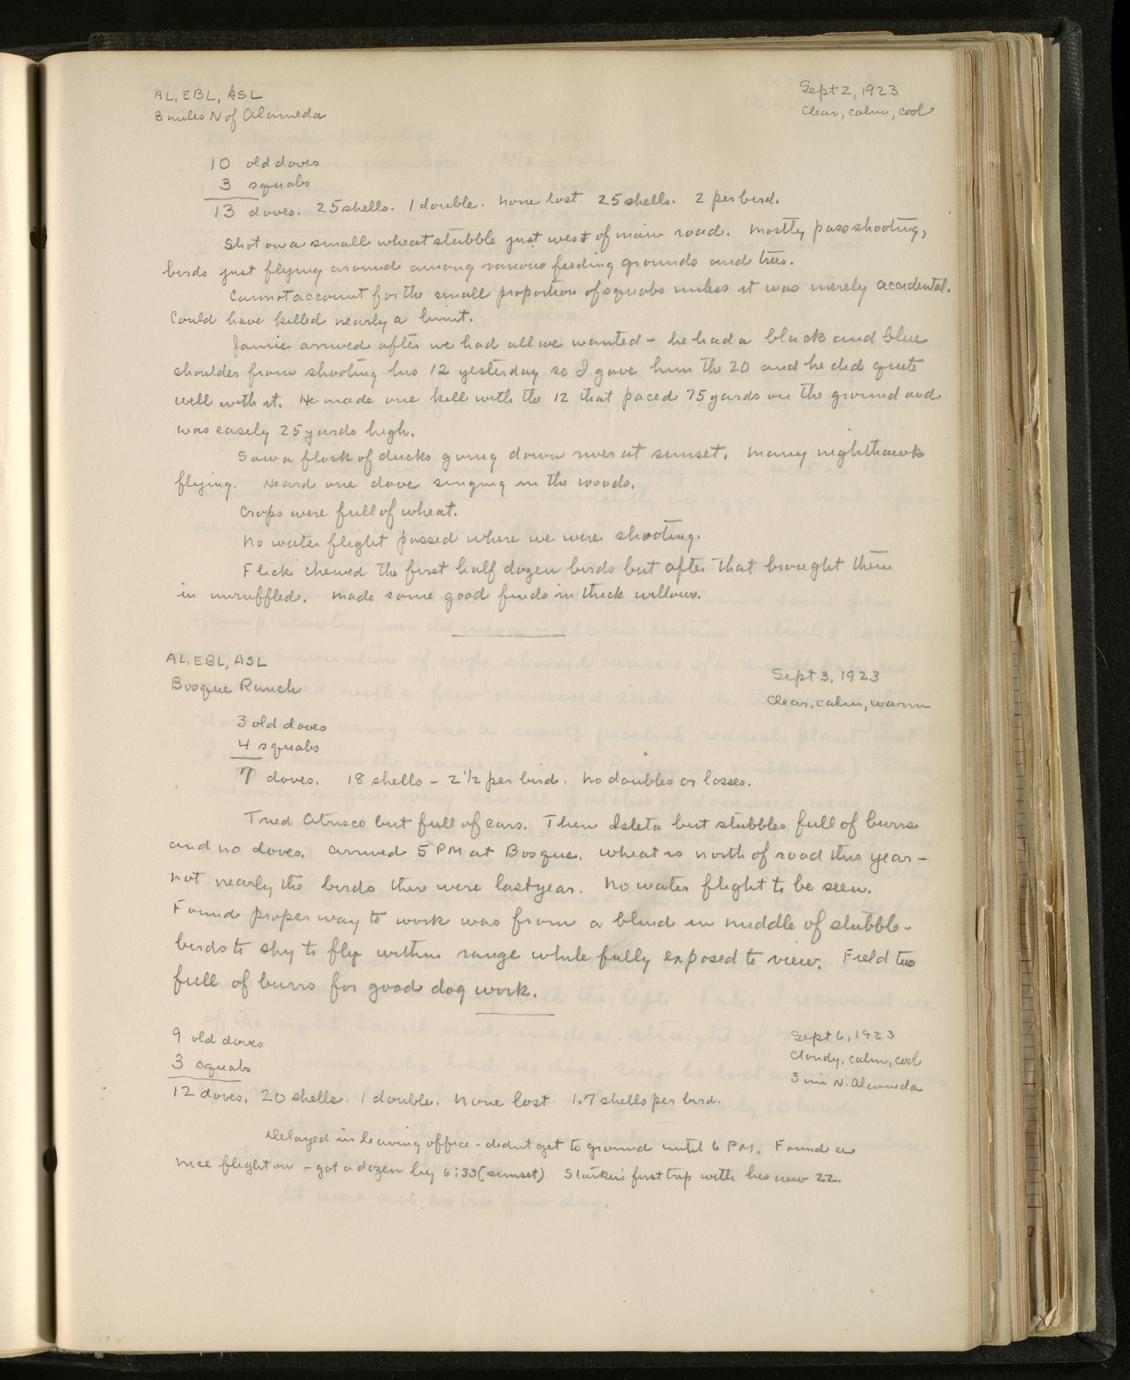 AL, EBL, ASL
3 miles N of Alameda
Sept 2, 1923
Clear, calm, cool
10 old doves
3 squabs
13 doves. 25 shells. 1 double. None lost. 25 shells. 2 per bird.
Shot on a small wheat stubble just west of main road. Mostly pass shooting,
birds just flying around among various feeding grounds and trees.
Cannot account for the small proportion of squabs unless it was merely accidental.
Could have killed nearly a limit.
Jamie arrived after we had all we wanted - he had a black and blue
shoulder from shooting his 12 yesterday so I gave him the 20 and he did quite
well with it. He made one kill with the 12 that paced 75 yards on the ground and
was easily 25 yards high.
Saw a flock of ducks going down river at sunset. Many nighthawks
flying. Heard one dove singing in the woods.
Crops were full of wheat.
No water flight passed where we were shooting.
Flick chewed the first half dozen birds but after that brought them
in unruffled. Made some good finds in thick willows.
AL, EBL, ASL
Bosque Ranch
Sept 3, 1923
Clear, calm, warm
3 old doves
4 squabs
7 doves. 18 shells - 2 1/2 per bird. No doubles or losses.
Tried Atrisco but full of cars. Then Isleta but stubbles full of burrs
and no doves. Arrived 5 PM at Bosque. Wheat is north of road this year -
not nearly the birds there were last year. No water flight to be seen.
Found proper way to work was from a blind in middle of stubble -
birds to shy to fly within range while fully exposed to view. Field too
full of burrs for good dog work.
9 old doves
3 squabs
Sept 6, 1923
Cloudy, calm, cool
3 mi N. Alameda
12 doves. 20 shells. 1 double. None lost. 1.7 shells per bird.
Delayed in leaving office - didnt get to ground until 6 PM. Found a
nice flight on - got a dozen by 6:33 (sunset). Starker's first trip with his new 22.